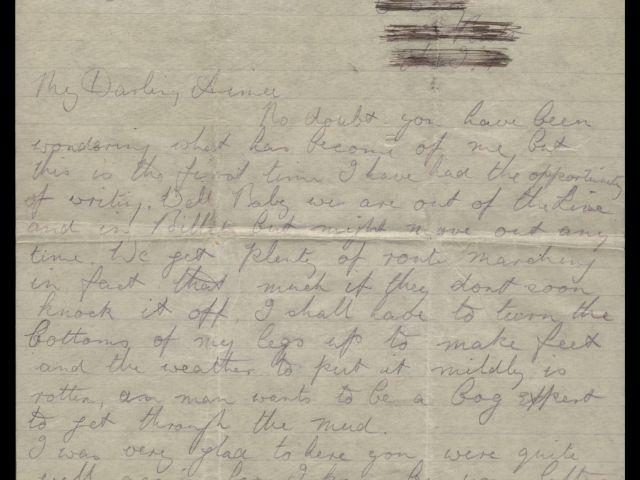 My Darling Aimee
No doubt you have been
wondering what has become of me but
this is the first time I have had the opportunity
of writing. Well Baby we are out of the Line
and in Billets but might move out any
time. We get plenty of route marching
in fact that much if they dont soon
knock it off, I shall have to turn the
bottoms of my legs up to make feet
and the weather to put it mildly is
rotten, a man wants to be a bog expert
to get through the mud.
I was very glad to here you were quite
well